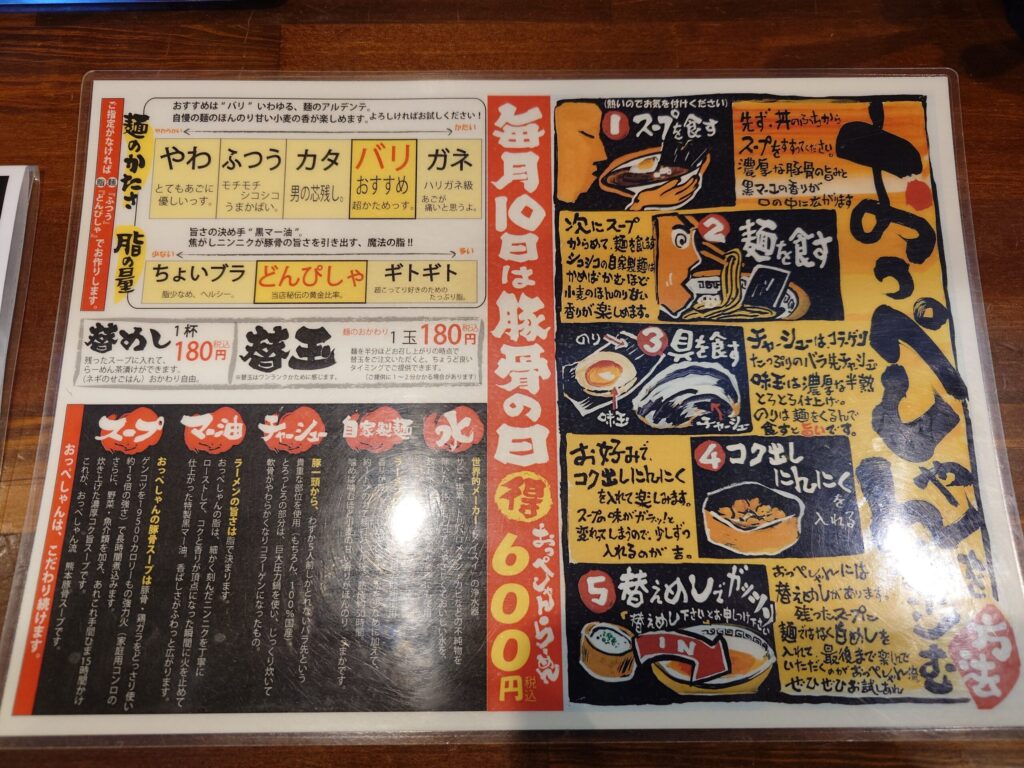 ご指定がなければ 脂 麺「ふつう」
「どんぴしゃ」でお作りします。
麺のかたさ
おすすめは“バリ”いわゆる、麺のアルデンテ。
自慢の麺のほんのり甘い小麦の香が楽しめます。よろしければお試しください！
やわらかい
かたい
やわ
とてもあごに
優しいっす。
ふつう
モチモチ
シコシコ
うまかばい。
カタ
男の芯残し。
バリ
おすすめ
超かためっす。
ガネ
ハリガネ級
あごが
痛いと思うよ。
脂の量
旨さの決め手“黒マー油”。
焦がしニンニクが豚骨の旨さを引き出す、魔法の脂!!
少ない
多い
ちょいブラ
脂少なめ、ヘルシー。
どんぴしゃ
当店秘伝の黄金比率。
ギトギト
超こってり好きのための
たっぷり脂。
替めし 1杯 180円 税込
残ったスープに入れて、
らーめん茶漬けができます。
(ネギのせごはん) おかわり自由。
替玉 麺のおかわり 1玉 180円 税込
※替玉はワンランクかために感じます。
麺を半分ほどお召し上がりの時点で
替玉をご注文いただくと、ちょうど良い
タイミングでご提供できます。
(ご提供に1～2分かかる場合があります)
水
自家製麺
チャーシュー
豚一頭から、わずか5人前しかとれないバラ先という
貴重な部位を使用(もちろん、100%国産)。
とろっとろの部分は、巨大圧力鍋を使い、じっくり炊いて
軟骨がやわらかくなりコラーゲンになったもの。
マー油
ラーメンの旨さは脂で決まります。
おっぺしゃんの脂は、細かく刻んだニンニクを丁寧に
ローストして、コクと香りが頂点になった瞬間に火を止めて
仕上がった特製黒マー油。香ばしさがふわっと広がります。
スープ
おっぺしゃんの豚骨スープは豚骨・鶏ガラをどっさり使い
ゲンコツを1950カロリーもの強力火(家庭用コンロの
約5倍の強さ)で長時間煮込みます。
さらに、野菜・魚介類を加え、あれこれ手間ひま15時間かけ
炊き上げた濃厚コク旨スープです。
これが、おっぺしゃん流 熊本豚骨スープです。
おっぺしゃんは、こだわり続けます。
毎月10日は豚骨の日
得 おっぺしゃんらーめん
600円 税込
おっぺしゃん
お作法
(熱いのでお気を付けください)
1 スープを食す
先ず、丼のふちから
スープをすすってください。
濃厚な豚骨の旨みと
黒マー油の香りが
口の中に広がります
2 麺を食す
次にスープ
からめて、麺を食します
シコシコの自家製麺は
かめばかむほど
小麦のほんのり甘い
香りが楽しめます。
3 具を食す
のり
味玉
チャーシュー
チャーシューはコラーゲン
たっぷりのバラ先チャーシュー
味玉は濃厚な半熟
とろとろ仕上げ。
のりは麺をくるんで
食すと旨いです。
4 コク出し
にんにく
を
入れる
お好みで、
コク出しにんにく
を入れて楽しみます。
スープの味がガラッ!と
変わってしまうので、少しずつ
入れるのが吉。
5 替えめしでガッツリ!
「替えめし下さい」とお申しつけ下さい
IN
おっぺしゃんには
替えめしがあります。
残ったスープに
麺ではなく白めしを
入れて、最後まで楽しんで
いただくのがおっぺしゃん流
ぜひぜひお試しあれ